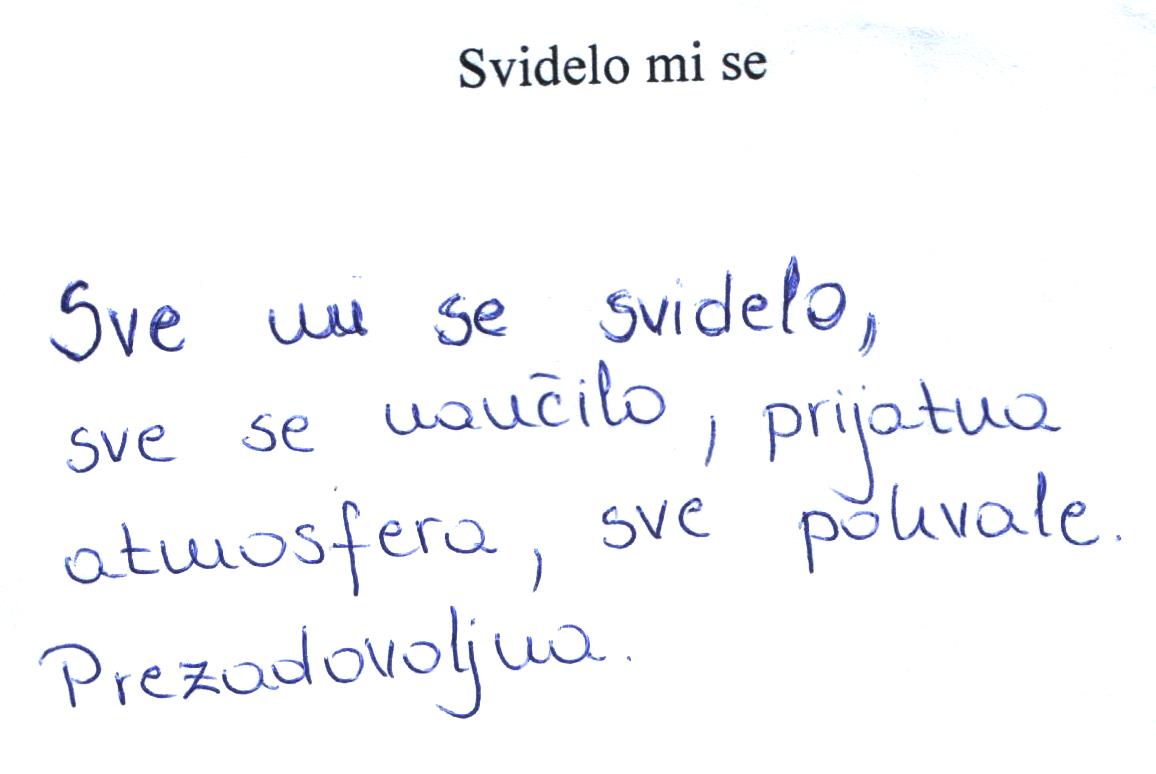 Svidelo mi se
Sve mi se svidelo,
sve se naučilo, prijatna
atmosfera, sve pohvale.
Prezadovoljna.